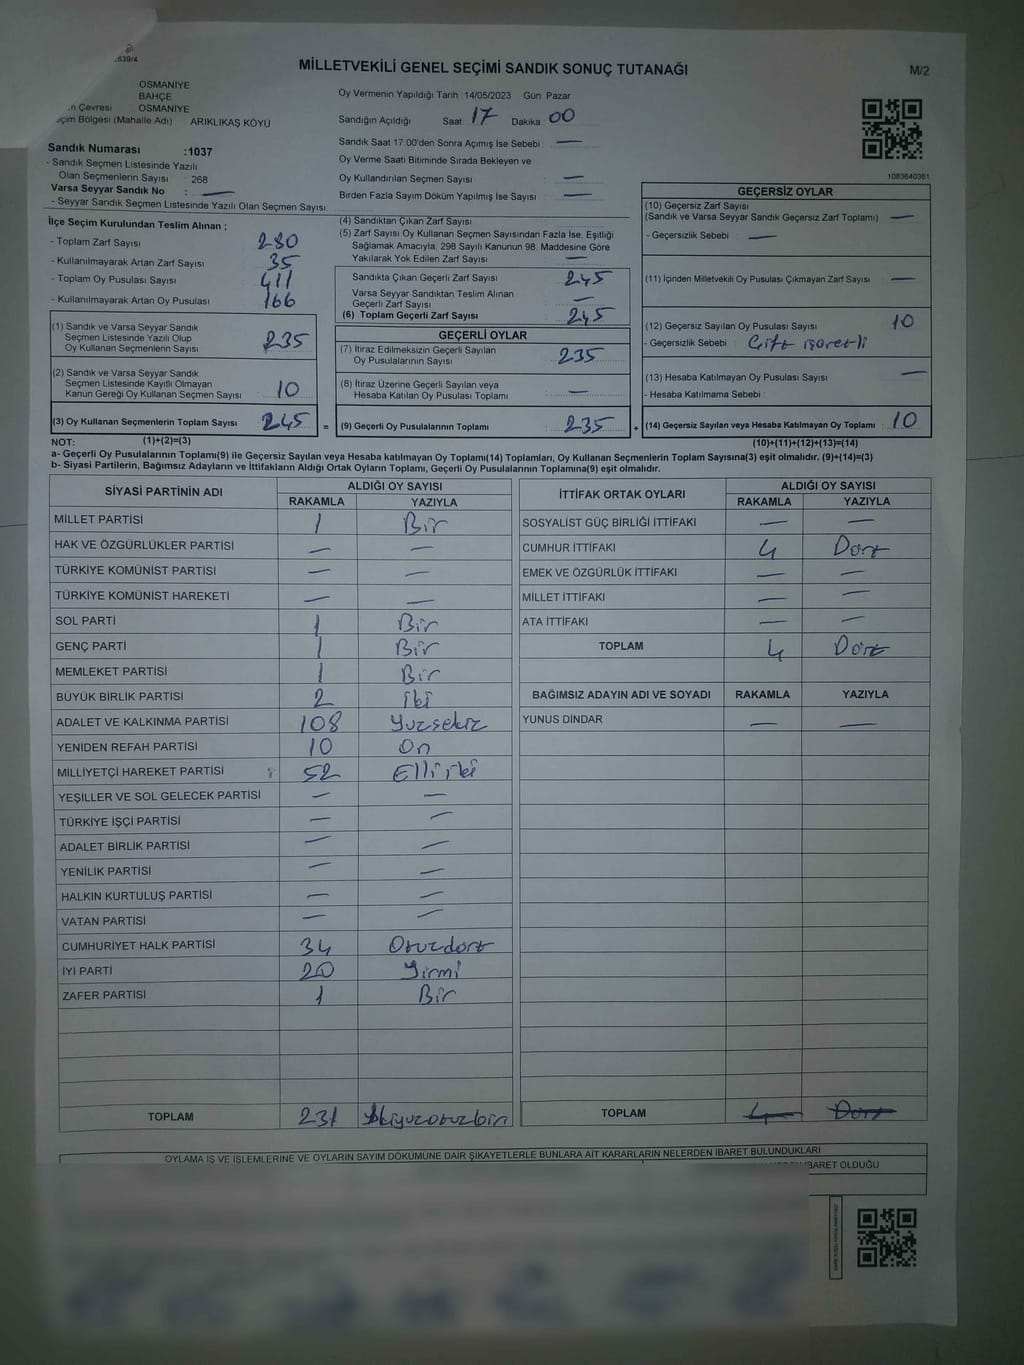 .639/4
MİLLETVEKİLİ GENEL SEÇİMİ SANDIK SONUÇ TUTANAĞI
M/2
OSMANİYE
BAHÇE
n Çevresi OSMANİYE
eçim Bölgesi (Mahalle Adı) ARIKLIKAŞ KÖYÜ
Oy Vermenin Yapıldığı Tarih :14/05/2023 Gün: Pazar
Sandığın Açıldığı Saat: 17 Dakika: 00
Sandık Numarası :1037
- Sandık Seçmen Listesinde Yazılı
Olan Seçmenlerin Sayısı : 268
Varsa Seyyar Sandık No : —
- Seyyar Sandık Seçmen Listesinde Yazılı Olan Seçmen Sayısı:
Sandık Saat 17:00'den Sonra Açımış İse Sebebi : —
Oy Verme Saati Bitiminde Sırada Bekleyen ve
Oy Kullandırılan Seçmen Sayısı : —
Birden Fazla Sayım Döküm Yapılmış İse Sayısı : —
1083640361
İlçe Seçim Kurulundan Teslim Alınan ;
- Toplam Zarf Sayısı : 280
- Kullanılmayarak Artan Zarf Sayısı : 35
- Toplam Oy Pusulası Sayısı : 411
- Kullanılmayarak Artan Oy Pusulası : 166
(1) Sandık ve Varsa Seyyar Sandık
Seçmen Listesinde Yazılı Olup
Oy Kullanan Seçmenlerin Sayısı : 235
(2) Sandık ve Varsa Seyyar Sandık
Seçmen Listesinde Kayıtlı Olmayan
Kanun Gereği Oy Kullanan Seçmen Sayısı : 10
(3) Oy Kullanan Seçmenlerin Toplam Sayısı : 245
(4) Sandıktan Çıkan Zarf Sayısı :
(5) Zarf Sayısı Oy Kullanan Seçmen Sayısından Fazla İse, Eşitliği
Sağlamak Amacıyla, 298 Sayılı Kanunun 98. Maddesine Göre
Yakılarak Yok Edilen Zarf Sayısı : —
Sandıkta Çıkan Geçerli Zarf Sayısı : 245
Varsa Seyyar Sandıktan Teslim Alınan
Geçerli Zarf Sayısı : —
(6) Toplam Geçerli Zarf Sayısı : 245
GEÇERLİ OYLAR
(7) İtiraz Edilmeksizin Geçerli Sayılan
Oy Pusulalarının Sayısı : 235
(8) İtiraz Üzerine Geçerli Sayılan veya
Hesaba Katılan Oy Pusulası Toplamı : —
= (9) Geçerli Oy Pusulalarının Toplamı : 235
GEÇERSİZ OYLAR
(10) Geçersiz Zarf Sayısı
(Sandık ve Varsa Seyyar Sandık Geçersiz Zarf Toplamı) : —
- Geçersizlik Sebebi : —
(11) İçinden Milletvekili Oy Pusulası Çıkmayan Zarf Sayısı : —
(12) Geçersiz Sayılan Oy Pusulası Sayısı : 10
- Geçersizlik Sebebi : Çift işaretli
(13) Hesaba Katılmayan Oy Pusulası Sayısı : —
- Hesaba Katılmama Sebebi :
+ (14) Geçersiz Sayılan veya Hesaba Katılmayan Oy Toplamı : 10
NOT: (1)+(2)=(3)
(10)+(11)+(12)+(13)=(14)
a- Geçerli Oy Pusulalarının Toplamı(9) ile Geçersiz Sayılan veya Hesaba katılmayan Oy Toplamı(14) Toplamları, Oy Kullanan Seçmenlerin Toplam Sayısına(3) eşit olmalıdır. (9)+(14)=(3)
b- Siyasi Partilerin, Bağımsız Adayların ve İttifakların Aldığı Ortak Oyların Toplamı, Geçerli Oy Pusulalarının Toplamına(9) eşit olmalıdır.
SİYASİ PARTİNİN ADI ALDIĞI OY SAYISI
RAKAMLA YAZIYLA
MİLLET PARTİSİ 1 Bir
HAK VE ÖZGÜRLÜKLER PARTİSİ — —
TÜRKİYE KOMÜNİST PARTİSİ — —
TÜRKİYE KOMÜNİST HAREKETİ — —
SOL PARTİ 1 Bir
GENÇ PARTİ 1 Bir
MEMLEKET PARTİSİ 1 Bir
BÜYÜK BİRLİK PARTİSİ 2 iki
ADALET VE KALKINMA PARTİSİ 108 Yuzsekiz
YENİDEN REFAH PARTİSİ 10 On
MİLLİYETÇİ HAREKET PARTİSİ 52 Elliiki
YEŞİLLER VE SOL GELECEK PARTİSİ — —
TÜRKİYE İŞÇİ PARTİSİ — —
ADALET BİRLİK PARTİSİ — —
YENİLİK PARTİSİ — —
HALKIN KURTULUŞ PARTİSİ — —
VATAN PARTİSİ — —
CUMHURİYET HALK PARTİSİ 34 Otuzdört
İYİ PARTİ 20 Yirmi
ZAFER PARTİSİ 1 Bir
TOPLAM 231 İkiyuzotuzbir
İTTİFAK ORTAK OYLARI ALDIĞI OY SAYISI
RAKAMLA YAZIYLA
SOSYALİST GÜÇ BİRLİĞİ İTTİFAKI — —
CUMHUR İTTİFAKI 4 Dört
EMEK VE ÖZGÜRLÜK İTTİFAKI — —
MİLLET İTTİFAKI — —
ATA İTTİFAKI — —
TOPLAM 4 Dört
BAĞIMSIZ ADAYIN ADI VE SOYADI RAKAMLA YAZIYLA
YUNUS DİNDAR — —
TOPLAM 4 Dört
OYLAMA İŞ VE İŞLEMLERİNE VE OYLARIN SAYIM DÖKÜMÜNE DAİR ŞİKAYETLERLE BUNLARA AİT KARARLARIN NELERDEN İBARET BULUNDUKLARI
İBARET OLDUĞU